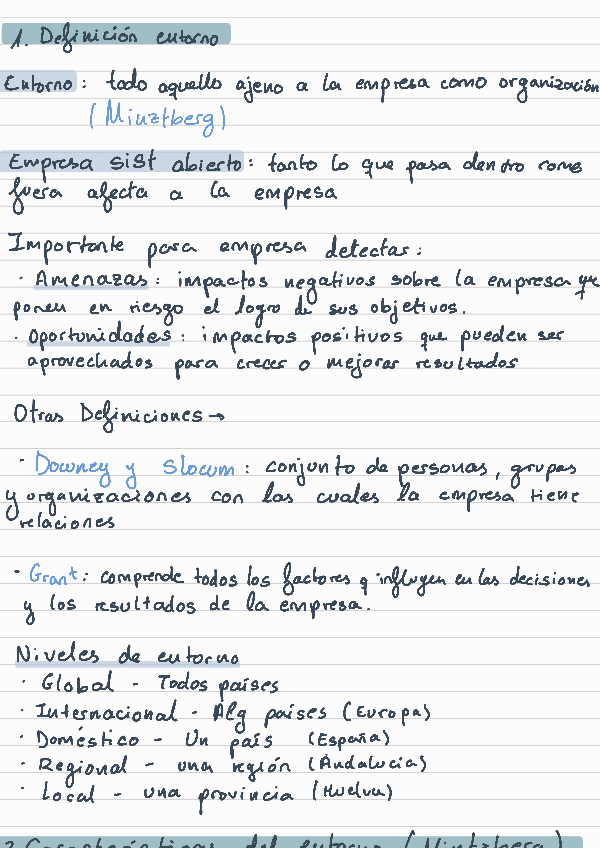 1. Definición entorno
Entorno: todo aquello ajeno a la empresa como organización
(Minztberg)
Empresa sist abierto: tanto lo que pasa dentro como
fuera afecta a la empresa
Importante para empresa detectar:
· Amenazas: impactos negativos sobre la empresa que
ponen en riesgo el logro de sus objetivos.
· Oportunidades: impactos positivos que pueden ser
aprovechados para crecer o mejorar resultados
Otras Definiciones →
· Downey y Slocum: conjunto de personas, grupos
y organizaciones con las cuales la empresa tiene
relaciones
· Grant: comprende todos los factores q influyen en las decisiones
y los resultados de la empresa.
Niveles de entorno
· Global - Todos países
· Internacional - Alg países (Europa)
· Doméstico - Un país (España)
· Regional - una región (Andalucía)
· Local - una provincia (Huelva)
2. Características del entorno (Mintzberg)